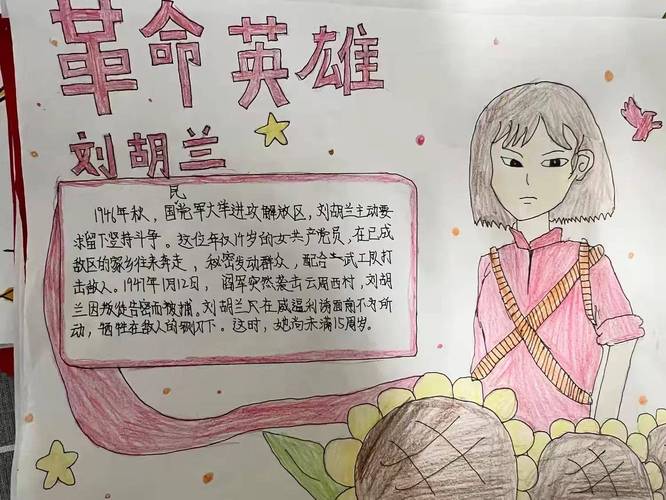 革命英雄
刘胡兰
1946年秋，国民党军大举进攻解放区，刘胡兰主动要
求留下坚持斗争。这位年仅14岁的女共产党员，在已成
敌区的家乡往来奔走，秘密发动群众，配合武工队打
击敌人。1947年1月12日，阎军突然袭击云周西村，刘胡
兰因叛徒告密而被捕。刘胡兰在威逼利诱面前不为所
动，牺牲在敌人的铡刀下。这时，她尚未满15周岁。